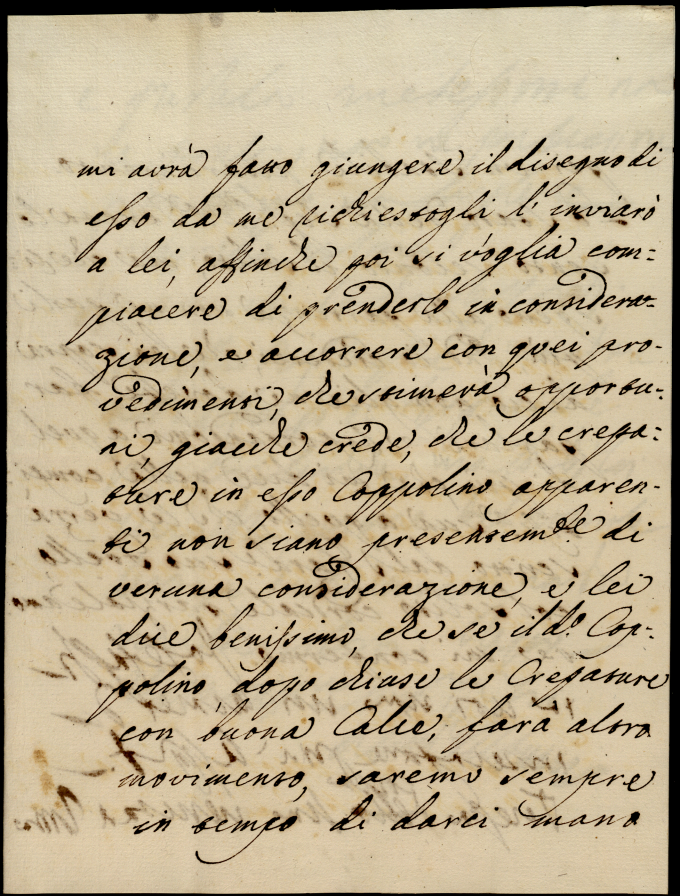 mi avrà fatto giungere il disegno di
esso da me richiestogli l'inviarò
a lei, affinche poi si voglia com-
piacere di prenderlo in considera-
zione, e accorrere con quei pro-
vedimenti, che stimerà opportu-
ni, giacche crede, che le crepa-
ture in esso Coppolino apparen-
ti non siano presentemte. di
veruna considerazione, e lei
dice benissimo, che se il do. Cop-
polino, dopo chiuse le Crepature
con buona Calce, farà altro
movimento, saremo sempre
in tempo di darci mano